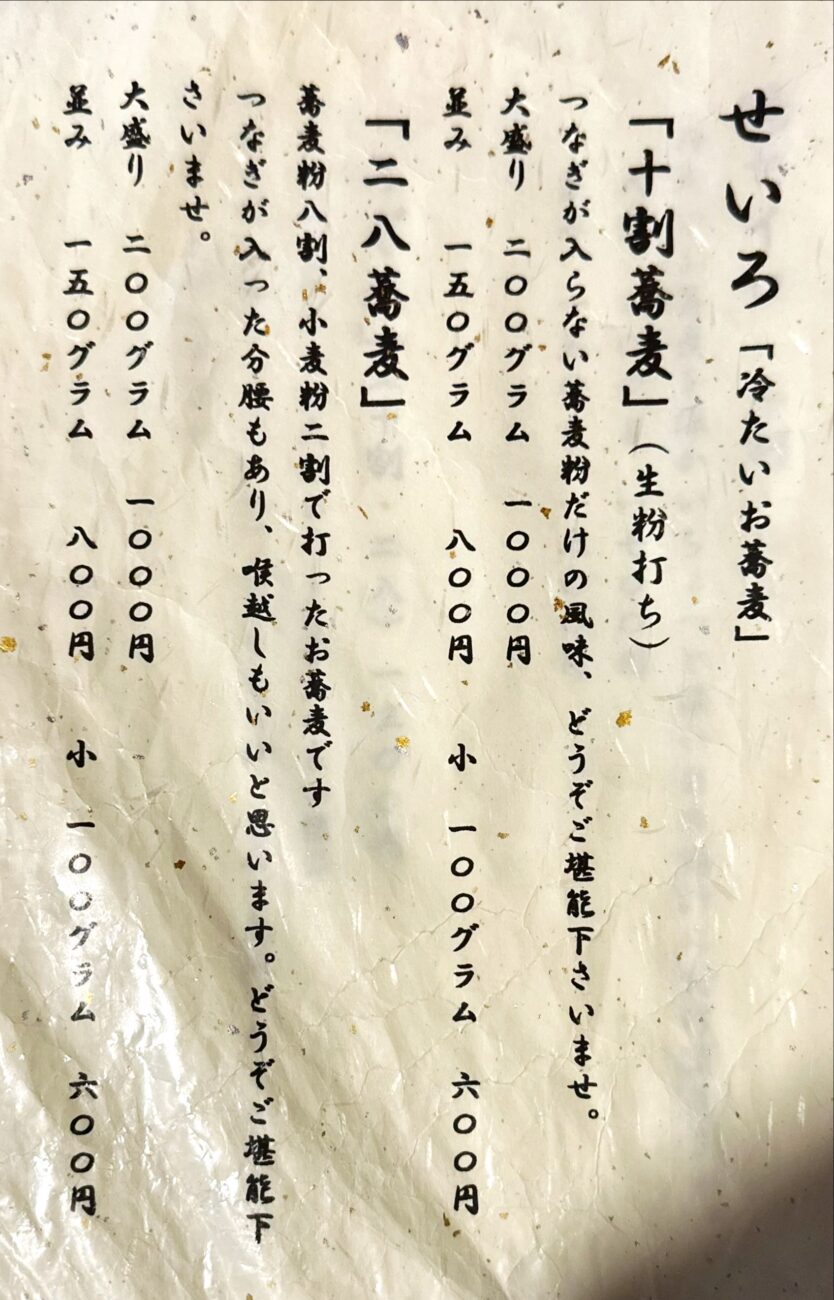 せいろ「冷たいお蕎麦」
「十割蕎麦」（生粉打ち）
つなぎが入らない蕎麦粉だけの風味、どうぞご堪能下さいませ。
大盛り 二〇〇グラム 一〇〇〇円
並み 一五〇グラム 八〇〇円 小 一〇〇グラム 六〇〇円
「二八蕎麦」
蕎麦粉八割、小麦粉二割で打ったお蕎麦です
つなぎが入った分腰もあり、喉越しもいいと思います。どうぞご堪能下
さいませ。
大盛り 二〇〇グラム 一〇〇〇円
並み 一五〇グラム 八〇〇円 小 一〇〇グラム 六〇〇円